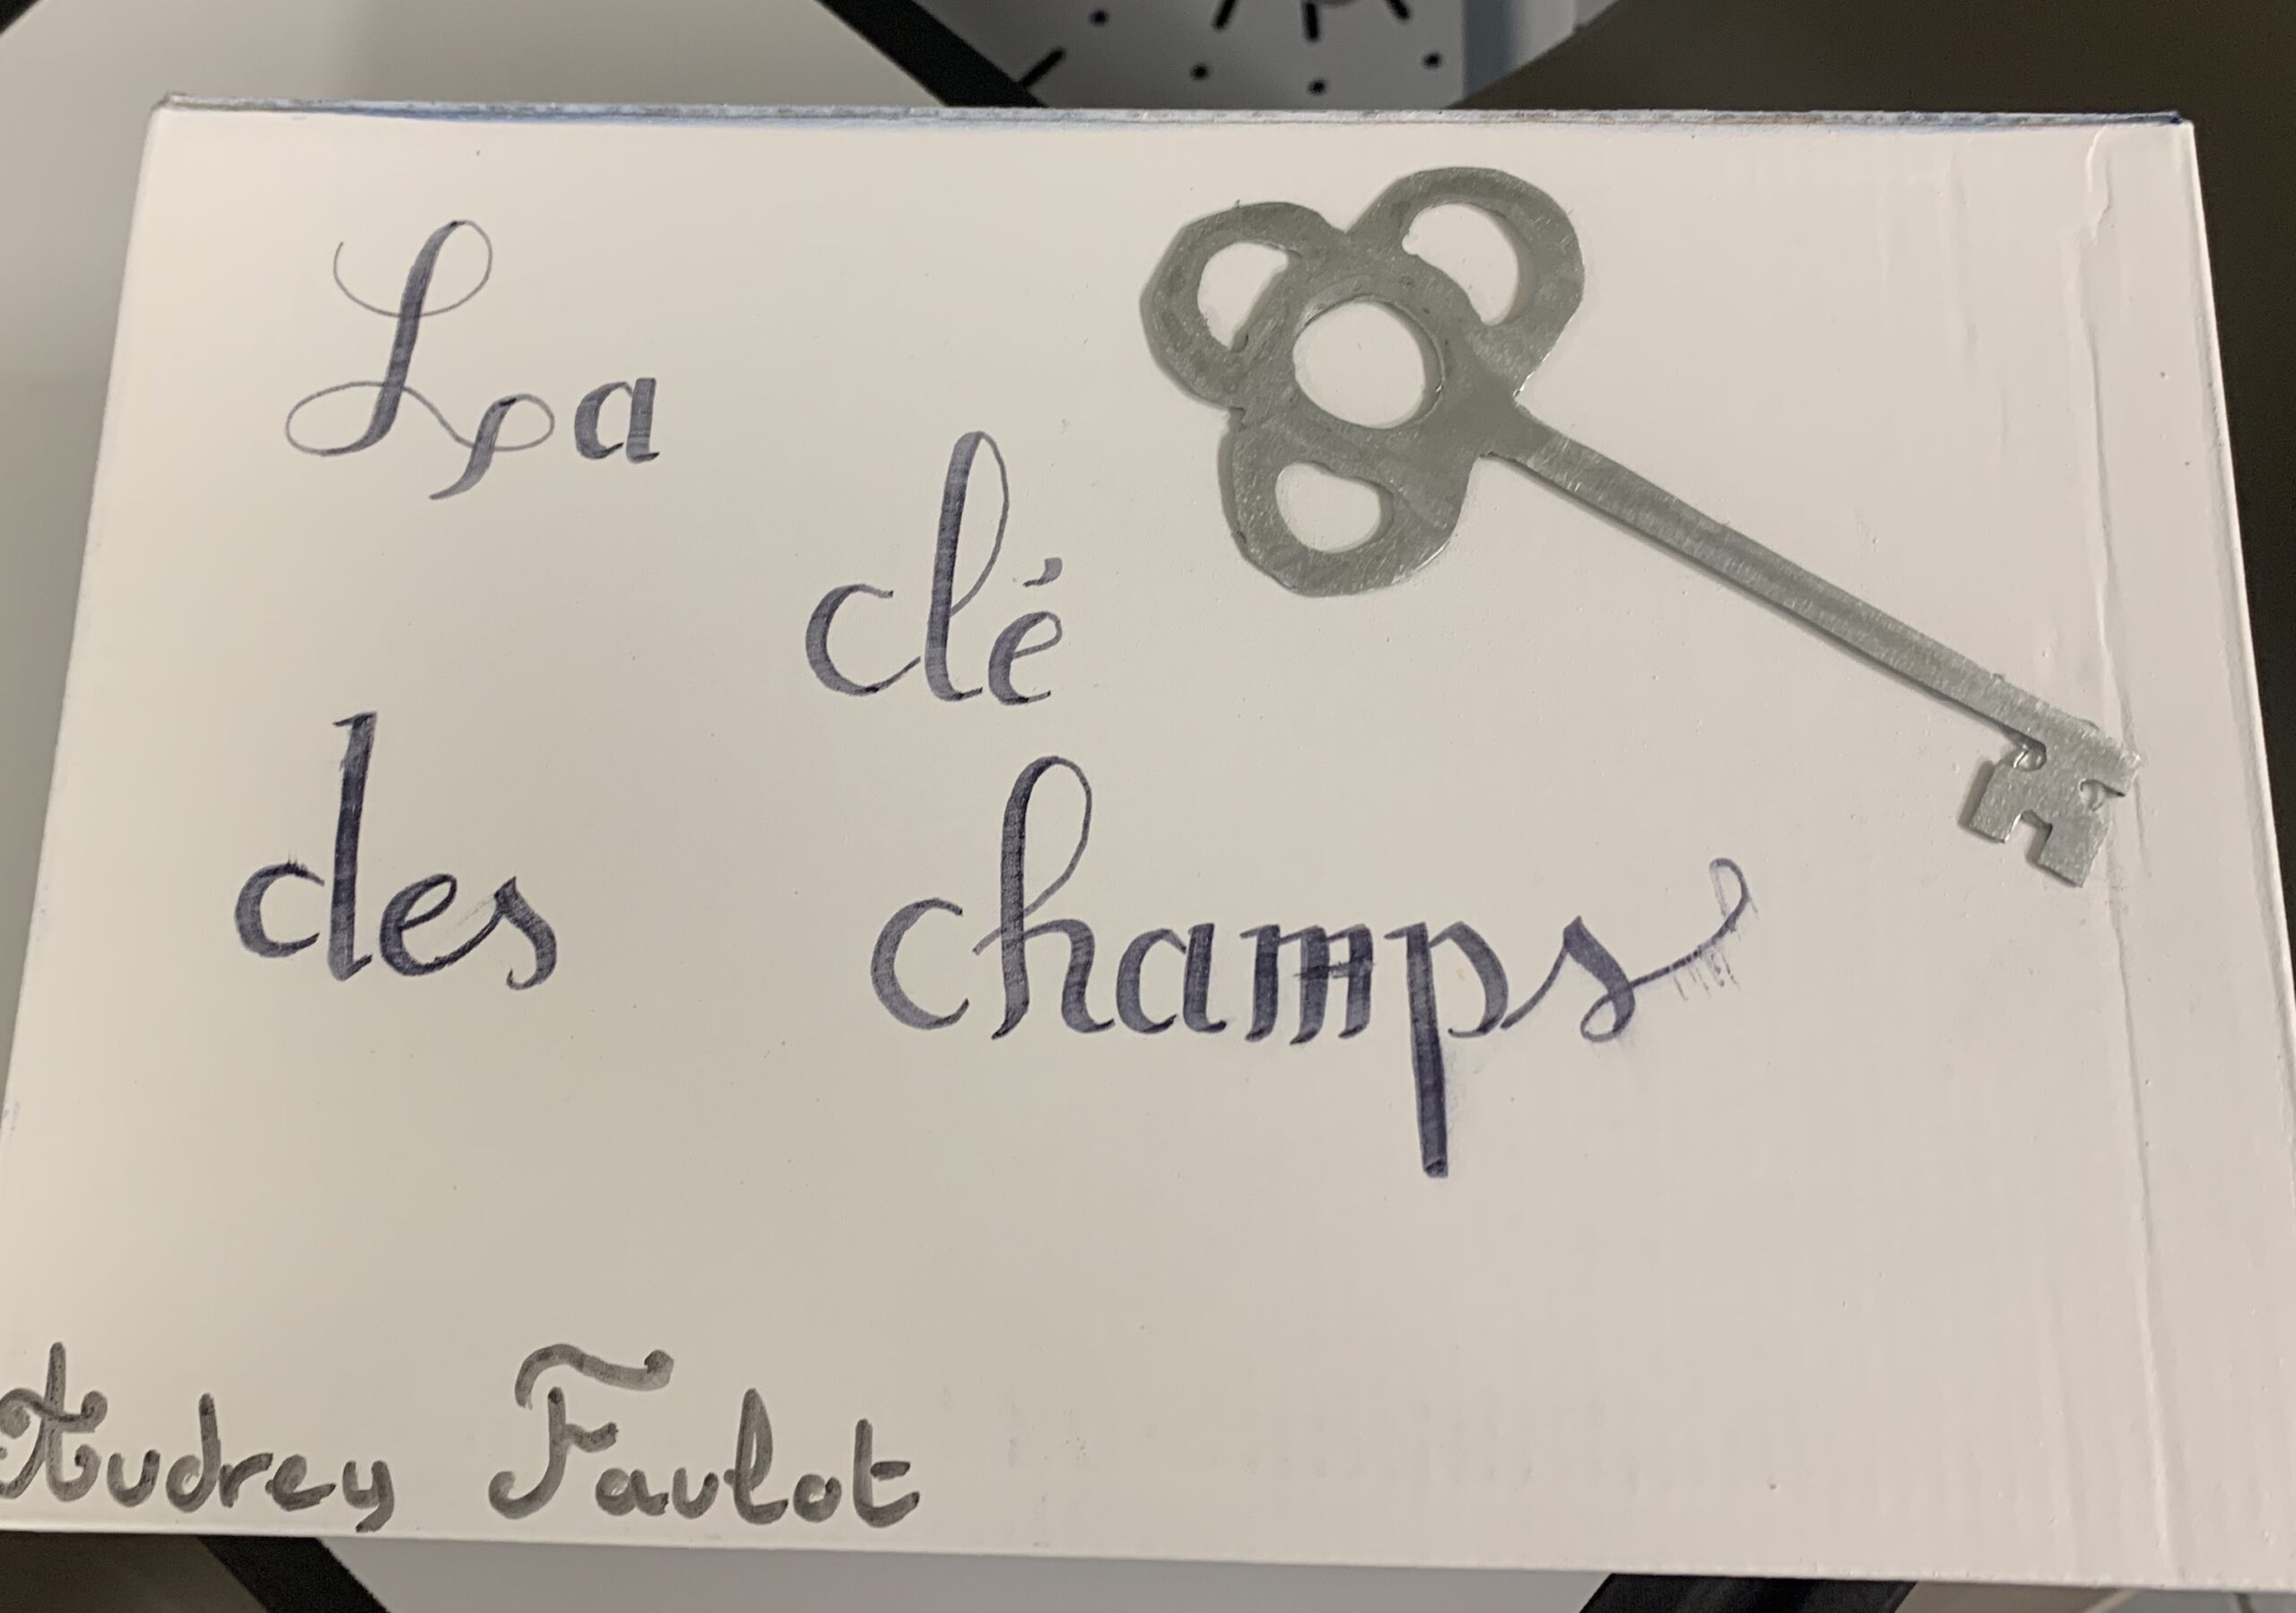 La
clé
des champs
Audrey Faulot